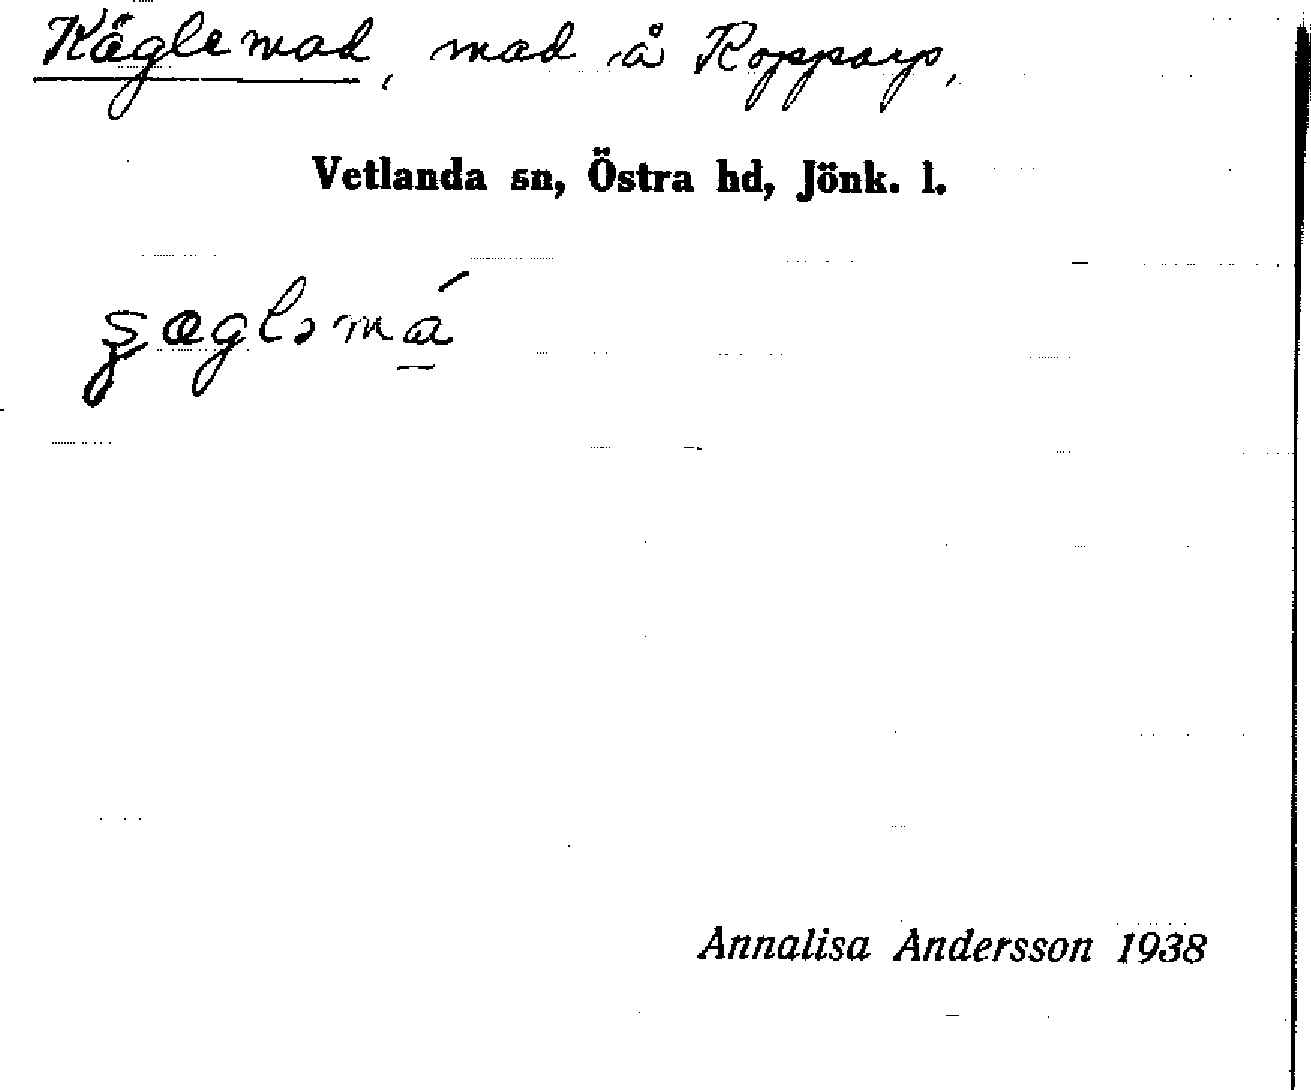 Käglemad, mad å Ropparp,
Vetlanda sn, Östra hd, Jönk. l.
Annalisa Andersson 1938